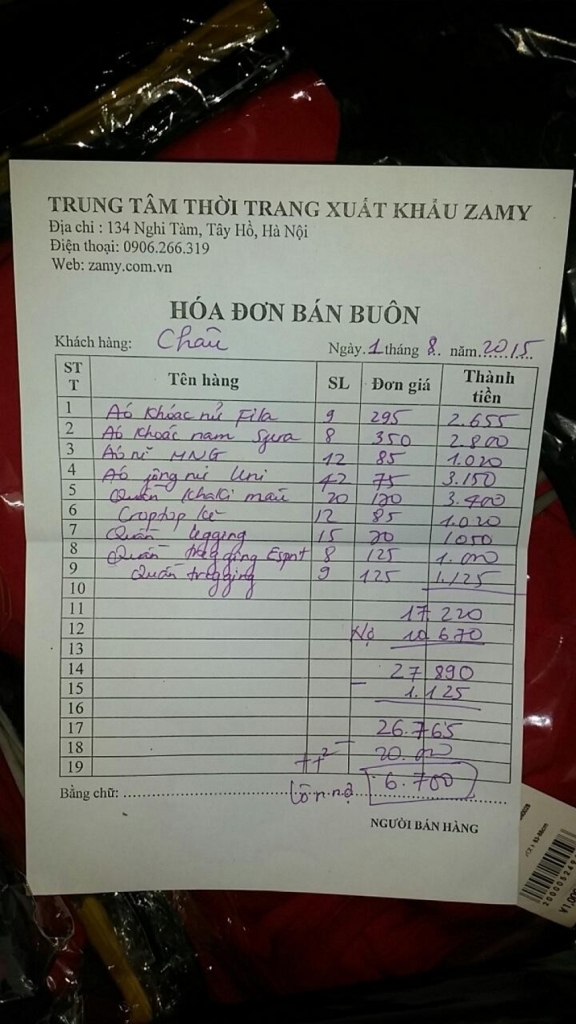 TRUNG TÂM THỜI TRANG XUẤT KHẨU ZAMY
Địa chỉ : 134 Nghi Tàm, Tây Hồ, Hà Nội
Điện thoại: 0906.266.319
Web: zamy.com.vn
HÓA ĐƠN BÁN BUÔN
Khách hàng: Châu Ngày.1 tháng 8. năm.2015
STT Tên hàng SL Đơn giá Thành tiền
1 Áo khoác nữ Fila 9 295 2.655
2 Áo khoác nam 8 350 2.800
3 Áo nữ MNG 12 85 1.020
4 Áo nữ Uni 42 75 3.150
5 Quần khaki màu 20 170 3.400
6 Croptop kẻ 12 85 1.020
7 Quần legging 15 70 1050
8 Quần tregging Esprit 8 125 1.000
9 Quần tregging 9 125 1.125
10
11 17 220
12 Nợ 10 670
13
14 27 890
15 - 1.125
16
17 26.765
18 - 20.000
19 6.700
Bằng chữ: Còn nợ
NGƯỜI BÁN HÀNG